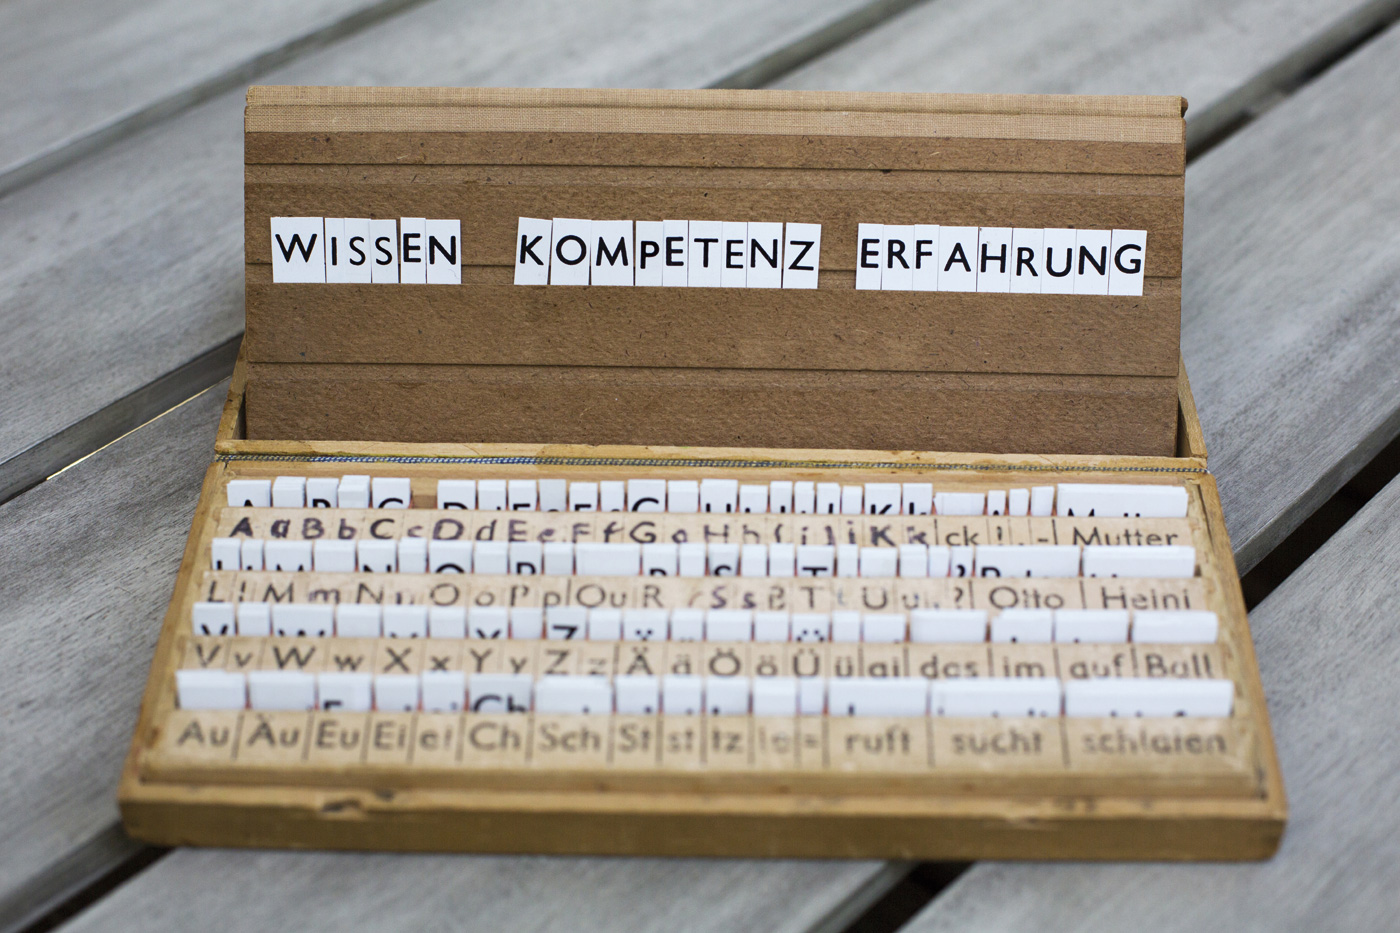 WISSEN KOMPETENZ ERFAHRUNG
A a B b C c D d E e F f G g H h I i J j K k ck ! . - Mutter
L l M m N n O o P p Qu R r S s ß T t U u . ? Otto Heini
V v W w X x Y y Z z Ä ä Ö ö Ü ü ai das im auf Ball
Au Äu Eu Ei ei Ch Sch St st tz ie = ruft sucht schlafen